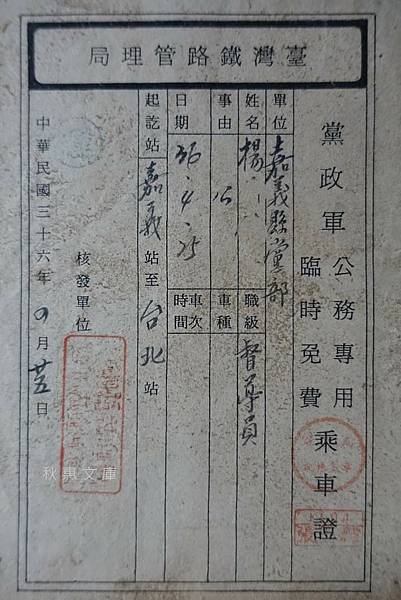 臺灣鐵路管理局
黨政軍公務專用臨時免費乘車證
單位 嘉義縣黨部
姓名 楊 職級 督導員
事由 公 車種
日期 36.4.25 車次時間
起訖站 嘉義站至台北站
核發單位
中華民國三十六年 四月廿五日
秋惠文庫